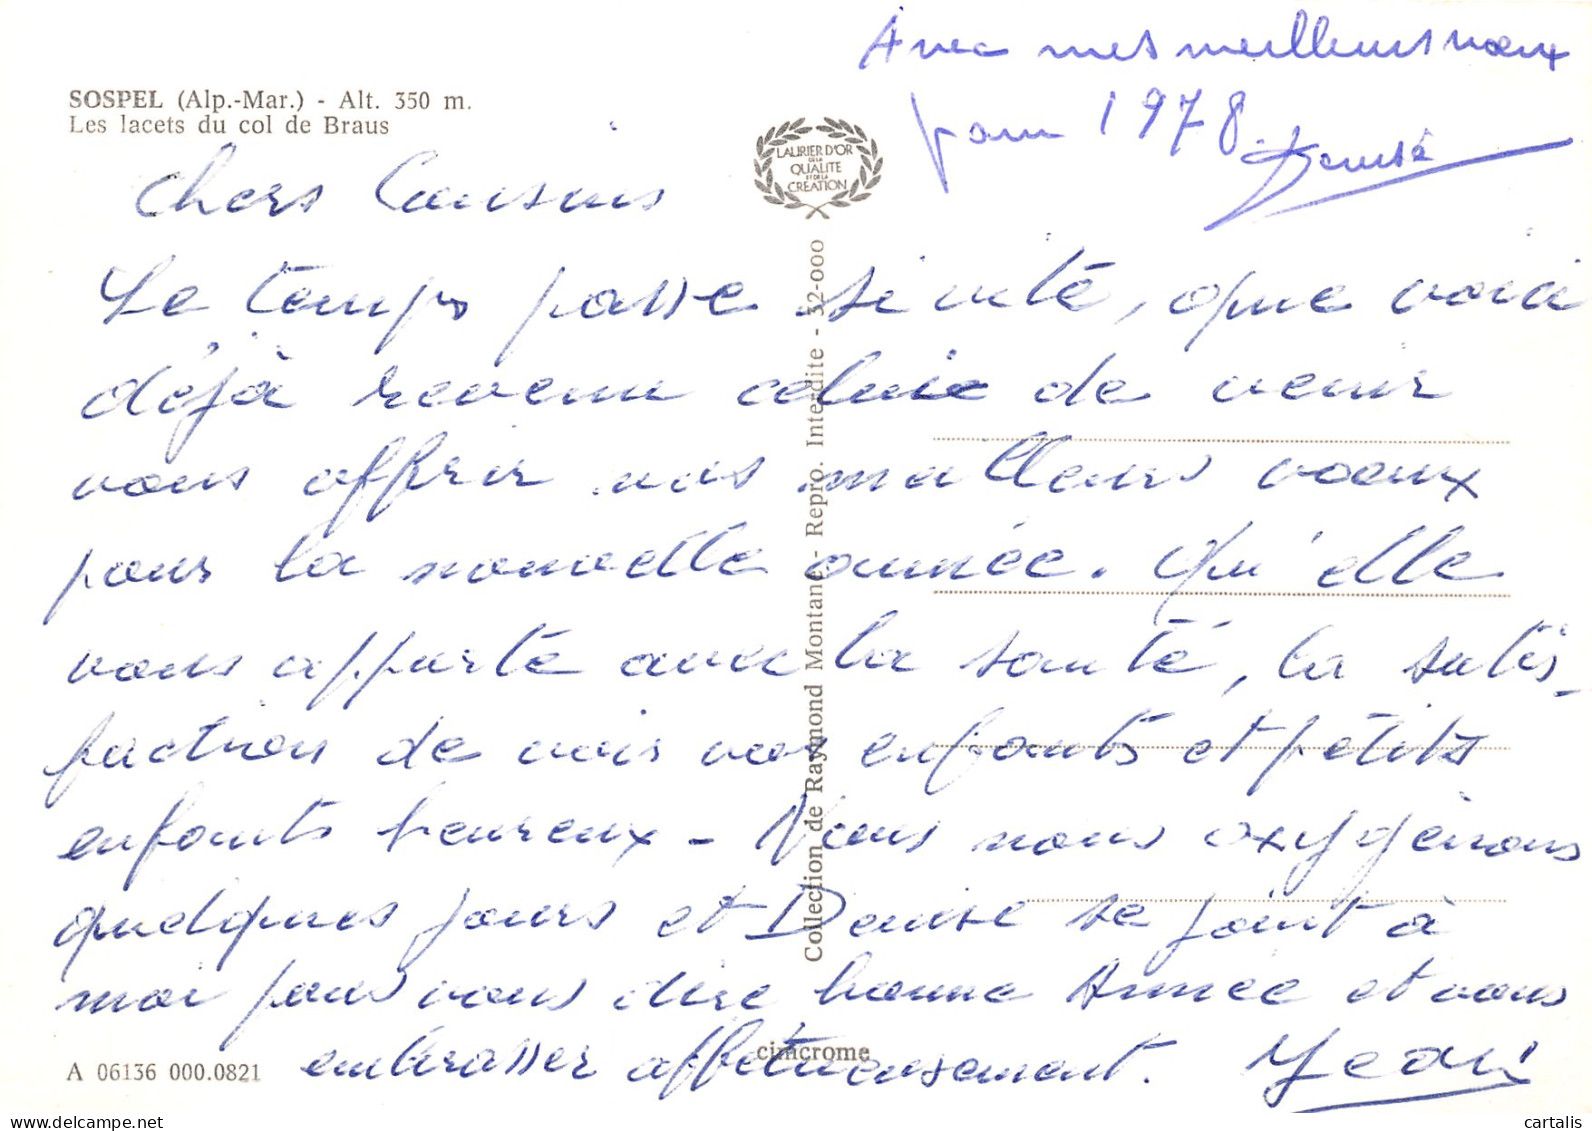 Avec mes meilleurs vœux
pour 1978.
Denise
SOSPEL (Alp.-Mar.) - Alt. 350 m.
Les lacets du col de Braus
LAURIER D'OR
DE LA
QUALITE
ET DE LA
CREATION
Chers Cousins
Le temps passe si vite, que voici
déjà revenu celui de venir
vous offrir nos meilleurs voeux
pour la nouvelle année. Qu'elle
vous apporte avec la santé, la satis-
faction de voir vos enfants et petits
enfants heureux - Nous nous oxygénons
quelques jours et Denise se joint à
moi pour vous dire bonne Année et vous
embrasser affectueusement. Jean
Collection de Raymond Montane - Repro. Interdite - 32-000
cimcrome
A 06136 000.0821
cartalis